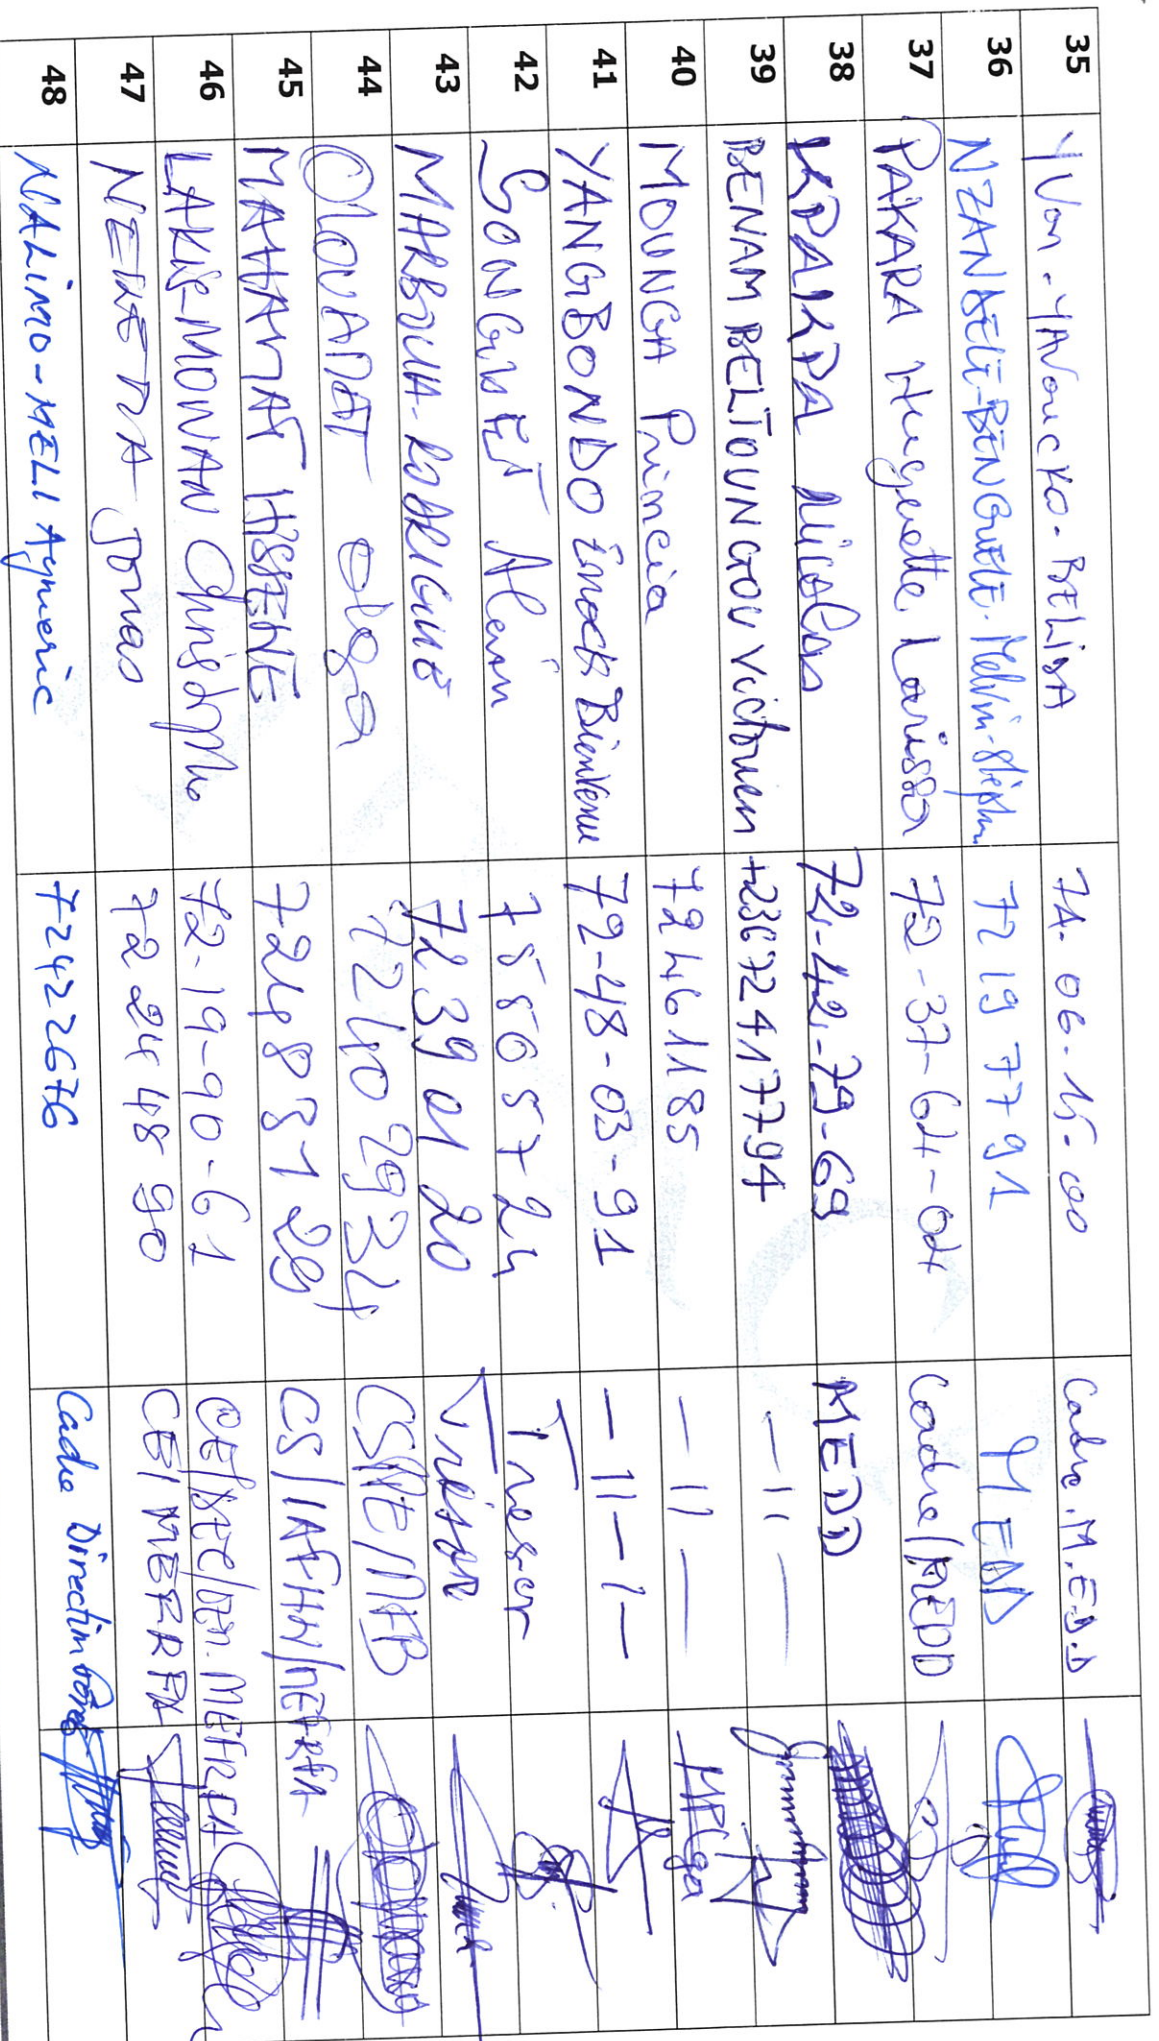 35 Yvon-YAVoucko-BELiDA 7A-06-15-00 Cadre.M.E.D.D
36 NZANDELE-BENGUELE. Melvin-Stephn 72 19 77 91 MEDD
37 PAKARA Huguette Larissa 72-37-64-04 Cadre/MEDD
38 KPAKPA Nicolas 72-42-79-69 MEDD
39 BENAM BELTOUNGOU Victorien +23672417794 — 11 —
40 MOUNGA Princia 72461185 — 11 —
41 YANGBONDO Enock Bienvenu 72-48-03-91 — 11 — 1 —
42 SONGUET Alain 75565724 Tresor
43 MARBOUA-RODRIGUE 72 39 01 20 Trésor
44 OLOUAPAT Olga 72 40 29 34
45 MAHAMAT HISSENE 72483129
46 Christophe 72-19-90-61
47 Jonas 72 24 48 90
48 NALIMO-MELI Aymeric 72422676 Cadre Direction